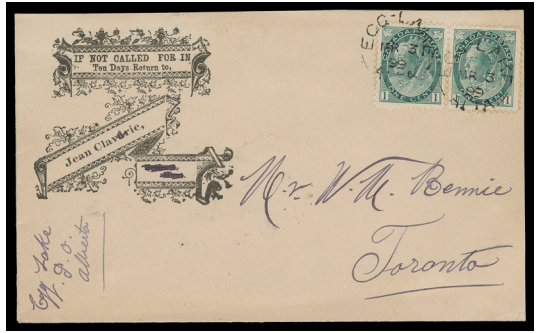 IF NOT CALLED FOR IN
Ten Days Return to,
Jean Claverie,
EGG-LAKE
CANADA POSTAGE
1 ONE CENT 1
Mr. W. M. Rennie
Toronto
Egg Lake
P. O.
Alberta